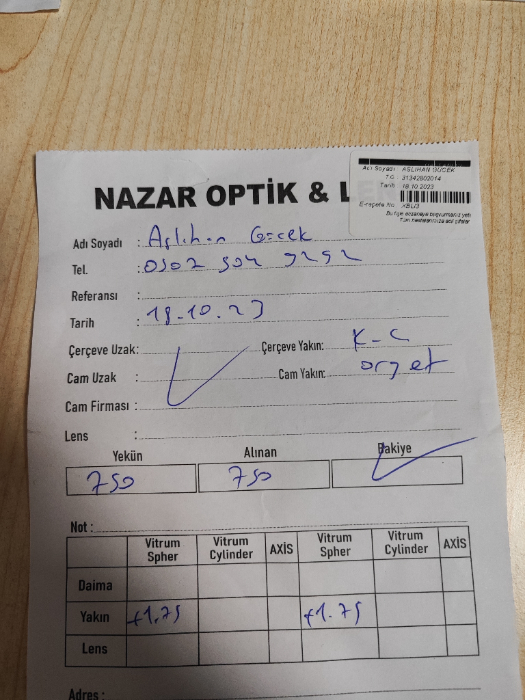 Adı Soyadı : ASLIHAN
T.C.
Tarih : 18.10.2023
E-reçete No
NAZAR OPTİK & L
Adı Soyadı : Aslıhan
Tel. :
Referansı :
Tarih : 18.10.23
Çerçeve Uzak: Çerçeve Yakın: K-C
Cam Uzak : Cam Yakın: orget
Cam Firması :
Lens :
Yekün Alınan Bakiye
750 750
Not :
Vitrum Spher Vitrum Cylinder AXİS Vitrum Spher Vitrum Cylinder AXİS
Daima
Yakın +1.75 +1.75
Lens
Adres :